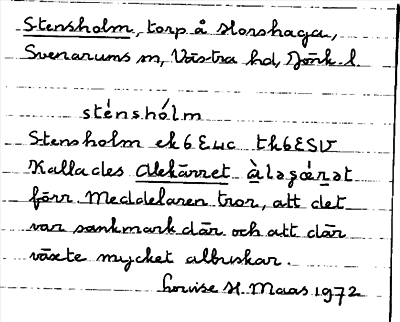 Stensholm, torp å Horshaga,
Svenarums sn, Västra hd, Jönk. l.
sténshólm
Stensholm ek
Kallades Alekärret àləʂǽr̥ət
förr. Meddelaren tror, att det
var sankmark där och att där
växte mycket albuskar.
Lovise H. Maas 1972